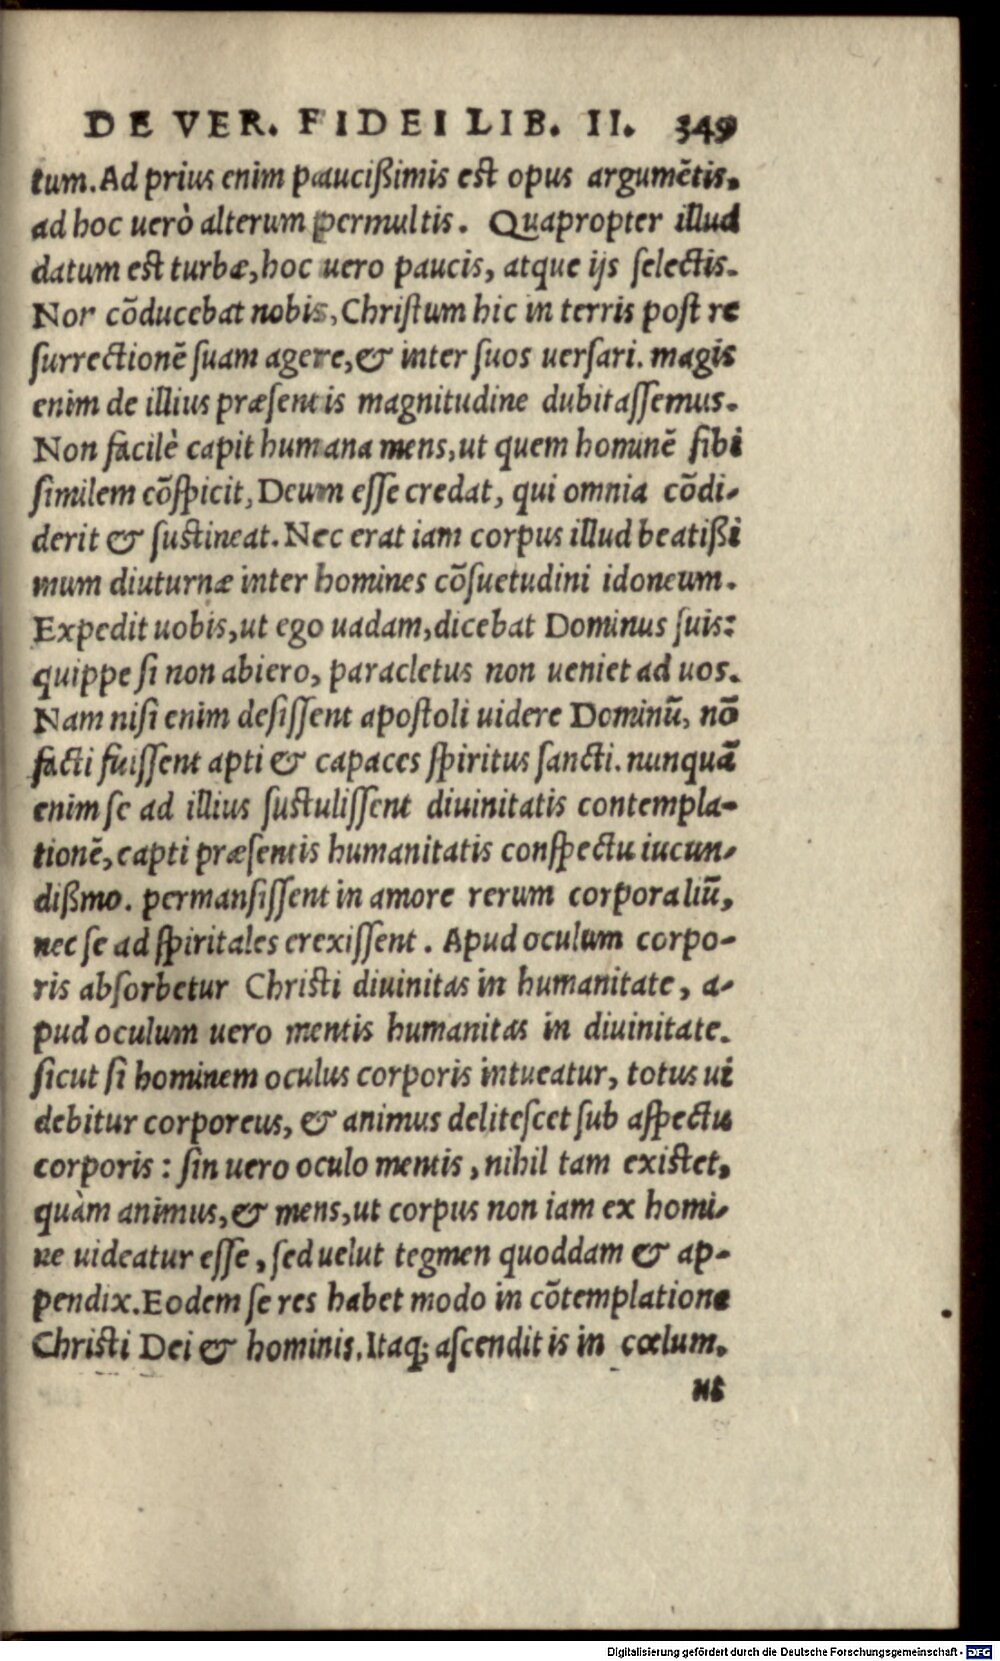 DE VER. FIDEI LIB. II. 349
tum. Ad prius enim paucißimis est opus argumētis.
ad hoc uerò alterum permultis. Quapropter illud
datum est turbæ, hoc uero paucis, atque ijs ſelectis.
Nor cōducebat nobis, Chriſtum hic in terris poſt re
ſurrectionē ſuam agere, & inter ſuos uerſari. magis
enim de illius præſentis magnitudine dubitaſſemus.
Non facilè capit humana mens, ut quem hominē ſibi
ſimilem cōſpicit, Deum eſſe credat, qui omnia cōdi-
derit & ſustineat. Nec erat iam corpus illud beatißi
mum diuturnæ inter homines cōſuetudini idoneum.
Expedit uobis, ut ego uadam, dicebat Dominus ſuis:
quippe ſi non abiero, paracletus non ueniet ad uos.
Nam niſi enim deſiſſent apoſtoli uidere Dominū, nō
facti fuiſſent apti & capaces ſpiritus ſancti. nunquā
enim ſe ad illius ſustuliſſent diuinitatis contempla-
tionē, capti præſentis humanitatis conſpectu iucun-
dißmo. permanſiſſent in amore rerum corporaliū,
nec ſe ad ſpiritales erexiſſent. Apud oculum corpo-
ris abſorbetur Christi diuinitas in humanitate, a-
pud oculum uero mentis humanitas in diuinitate.
ſicut ſi hominem oculus corporis intueatur, totus ui
debitur corporeus, & animus deliteſcet ſub aſpectu
corporis: ſin uero oculo mentis, nihil tam existet,
quàm animus, & mens, ut corpus non iam ex homi-
ne uideatur eſſe, ſed uelut tegmen quoddam & ap-
pendix. Eodem ſe res habet modo in cōtemplatione
Christi Dei & hominis. Itaq; aſcendit is in cœlum.
ne
Digitalisierung gefördert durch die Deutsche Forschungsgemeinschaft - DFG